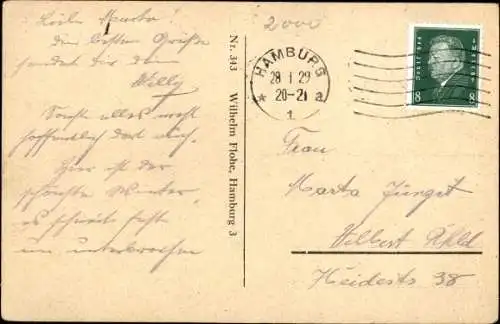 Liebe Marta!
die besten Grüße
sendet dir dein
Willy
Sonst alles wohl
hoffentlich dort auch.
Hier ist der
schönste Winter,
es schneit fast
un unterbrochen
Nr. 343 Wilhelm Flohe, Hamburg 3
2000
HAMBURG
28 1 29
20-21 a
* 1
8 8
Frau
Marta Jürget
Velbert Rhld
Heidestr 38